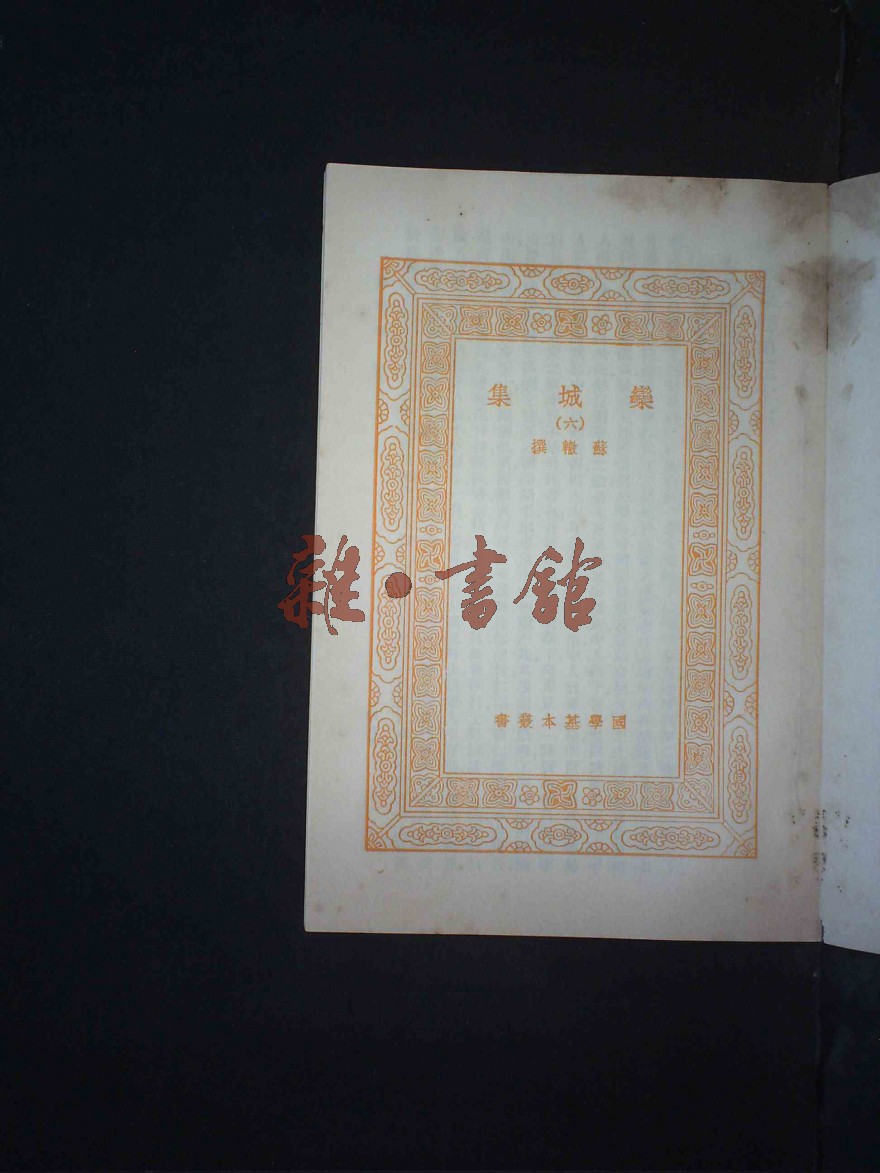 欒城集
(六)
蘇轍撰
雜·書館
國學基本叢書